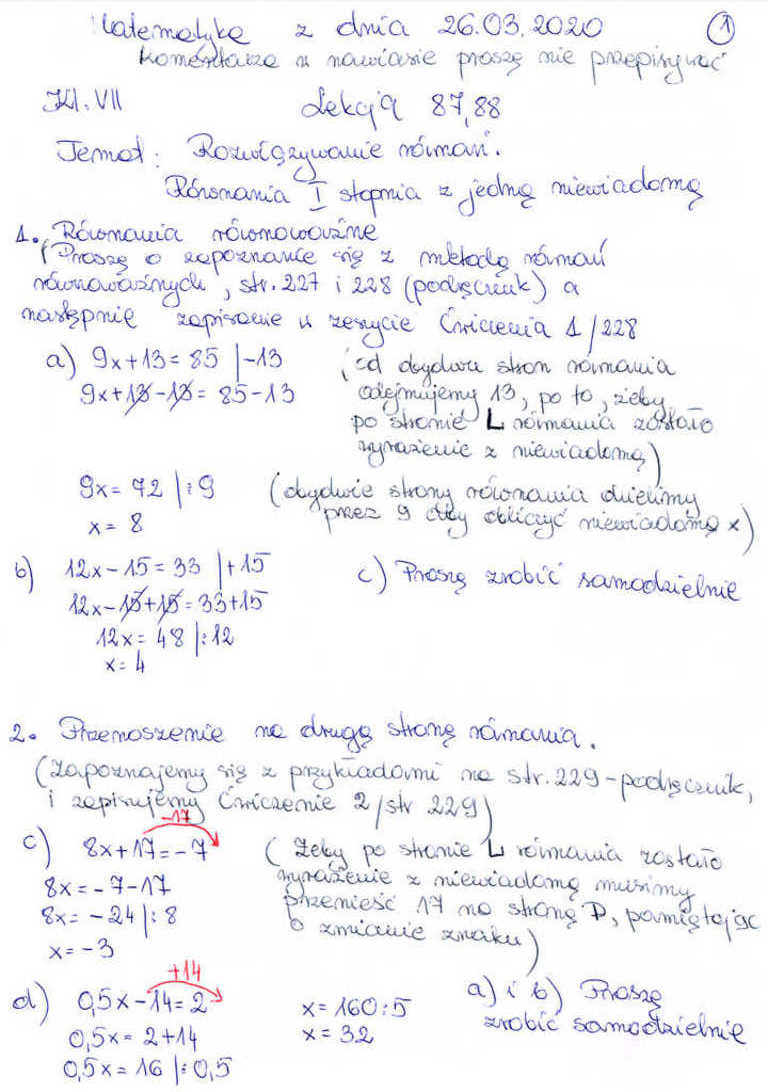 Matematyka z dnia 26.03.2020 1
Komentarze w nawiasie proszę nie przepisywać
Kl. VII Lekcja 87,88
Temat: Rozwiązywanie równań.
Równania I stopnia z jedną niewiadomą
1. Równania równoważne
(Proszę o zapoznanie się z metodą równań
równoważnych, str. 227 i 228 (podręcznik) a
następnie zapisanie w zeszycie Ćwiczenia 1/228
a) 9x+13=85 |-13 (od obydwu stron równania
9x+13-13=85-13 odejmujemy 13, po to, żeby
po stronie L równania zostało
wyrażenie z niewiadomą)
9x=72 |:9 (obydwie strony równania dzielimy
x=8 przez 9 aby obliczyć niewiadomą x)
b) 12x-15=33 |+15 c) Proszę zrobić samodzielnie
12x-15+15=33+15
12x=48 |:12
x=4
2. Przenoszenie na drugą stronę równania.
(Zapoznajemy się z przykładami na str. 229 - podręcznik,
i zapisujemy Ćwiczenie 2/str 229)
-17
c) 8x+17=-7 (Żeby po stronie L równania zostało
8x=-7-17 wyrażenie z niewiadomą musimy
8x=-24 |:8 przenieść 17 na stronę P, pamiętając
x=-3 o zmianie znaku)
+14
d) 0,5x-14=2 x=160:5 a) i b) Proszę
0,5x=2+14 x=32 zrobić samodzielnie
0,5x=16 |:0,5